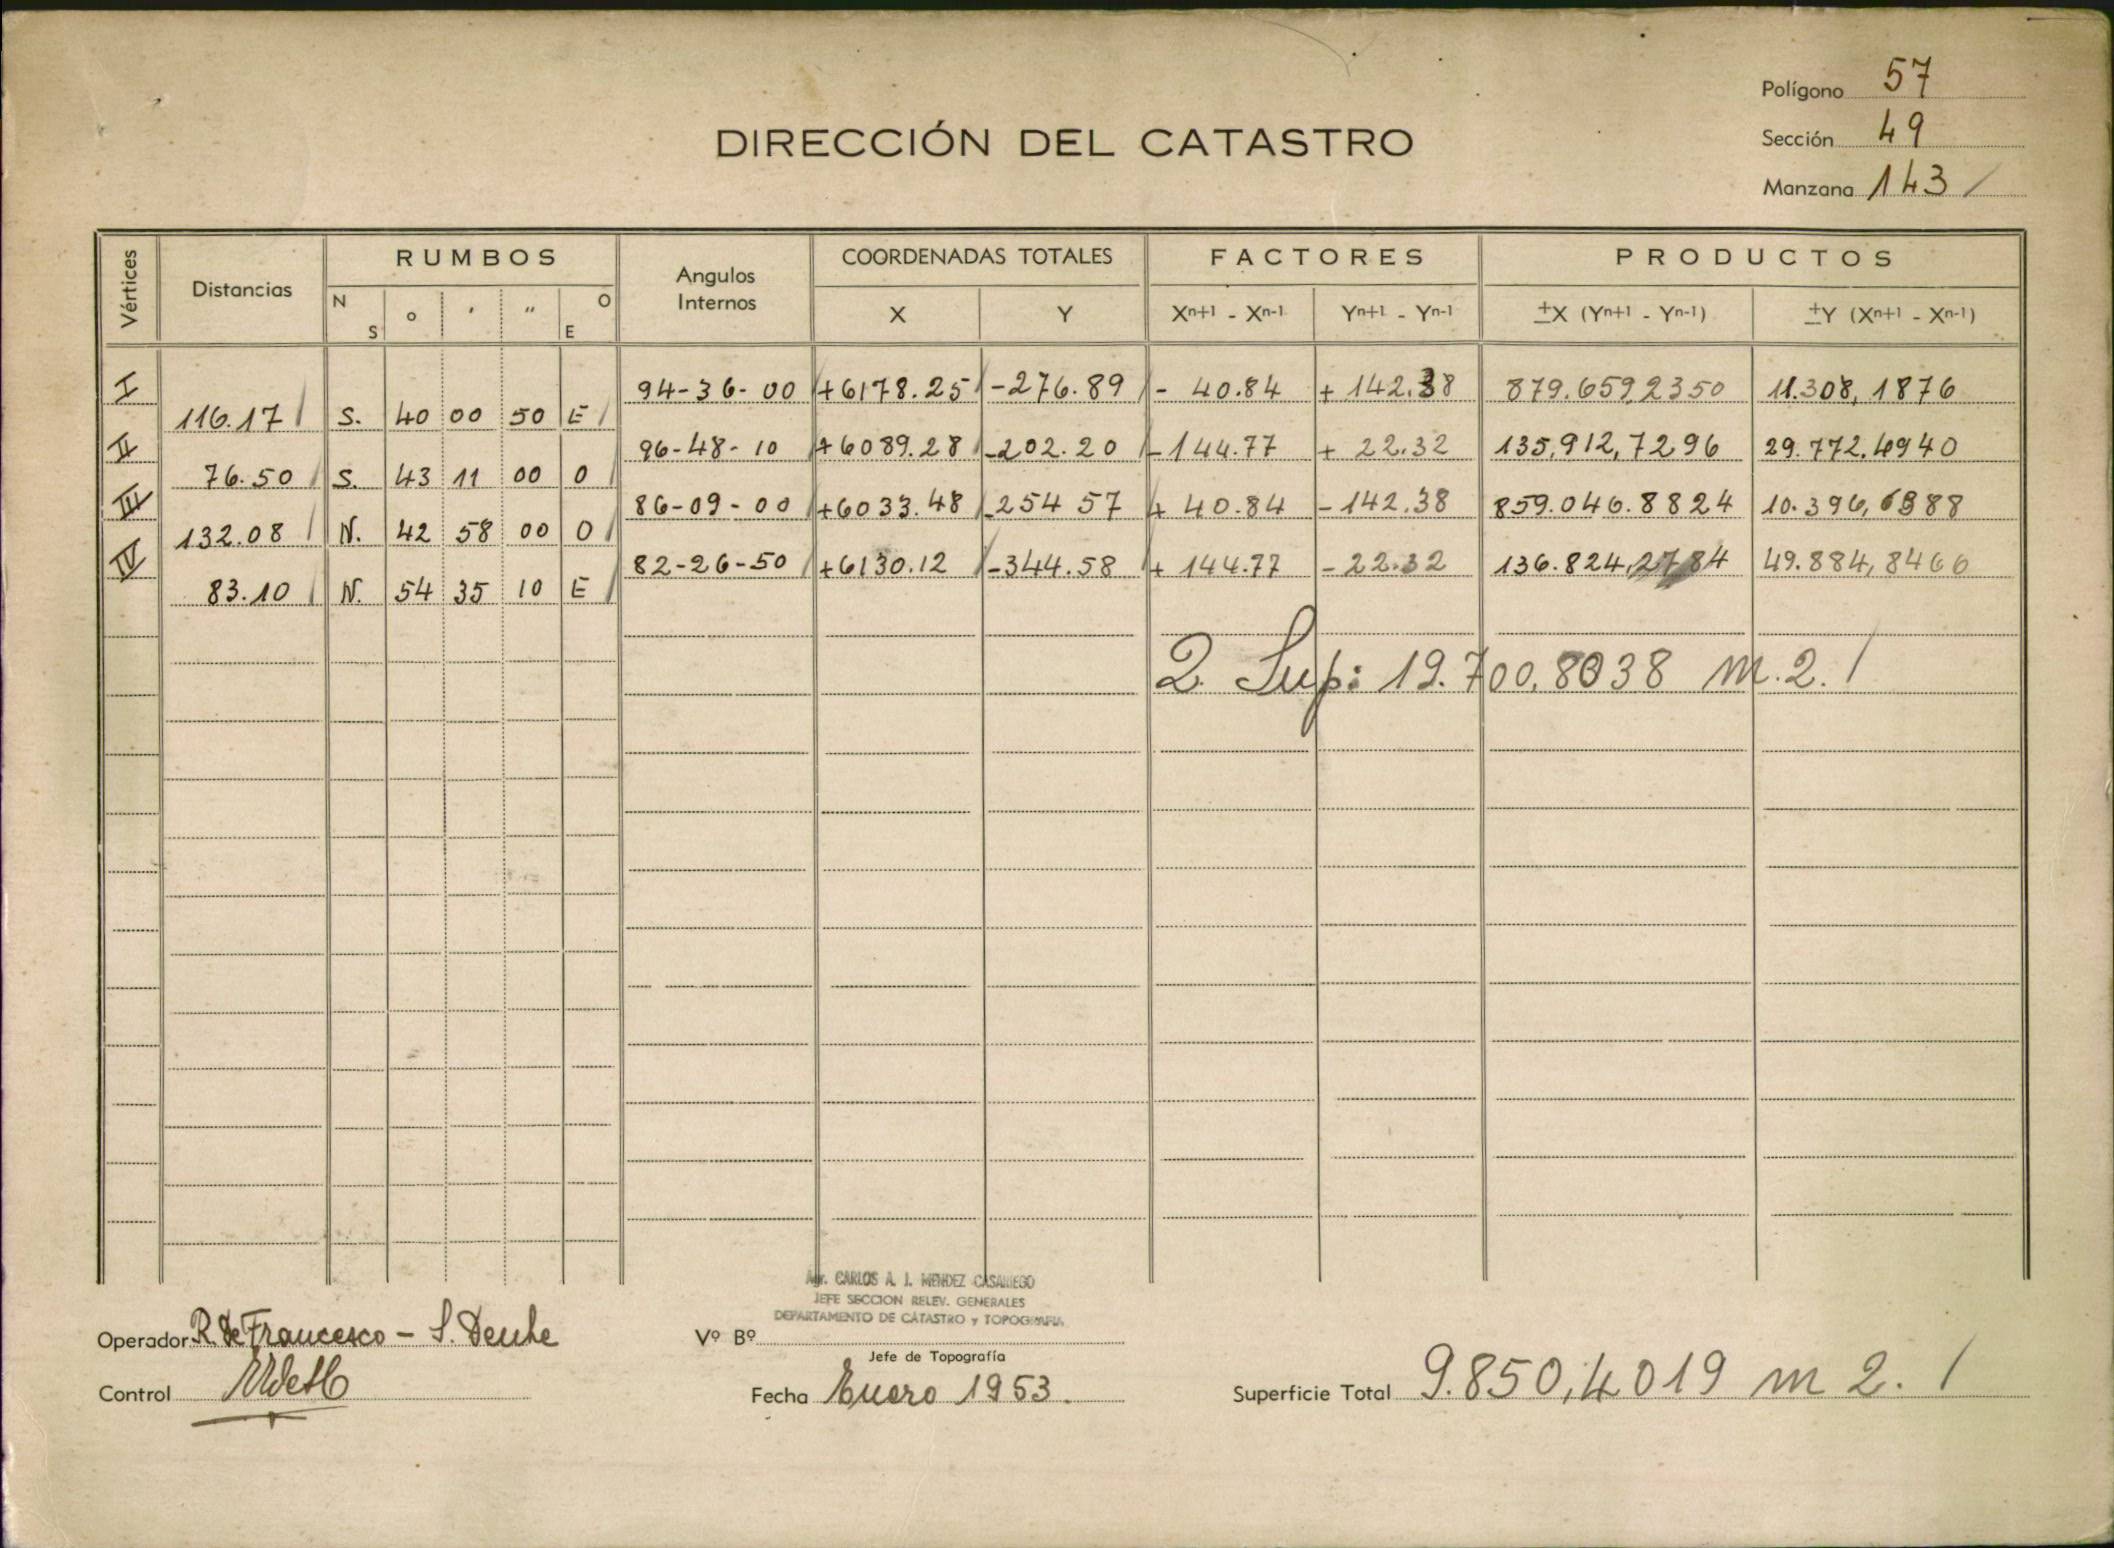 Polígono 57
DIRECCIÓN DEL CATASTRO
Sección 49
Manzana 143 /
Vértices Distancias RUMBOS Angulos Internos COORDENADAS TOTALES FACTORES PRODUCTOS
N S o ' " O E X Y Xn+1 - Xn-1 Yn+1 - Yn-1 ±X (Yn+1 - Yn-1) ±Y (Xn+1 - Xn-1)
I 94-36-00 +6178.25 -276.89 - 40.84 + 142.38 879.659,2350 11.308,1876
116.17 S. 40 00 50 E
II 96-48-10 +6089.28 -202.20 -144.77 + 22.32 135.912,7296 29.272,4940
76.50 S. 43 11 00 O
III 86-09-00 +6033.48 -254 57 + 40.84 -142.38 859.046.8824 10.396,6388
132.08 N. 42 58 00 O
IV 82-26-50 +6130.12 -344.58 + 144.77 -22.32 136.824,2784 49.884,8466
83.10 N. 54 35 10 E
2 Sup: 19.700,8038 m.2. /
Agr. CARLOS A. J. MENDEZ CASARIEGO
JEFE SECCION RELEV. GENERALES
DEPARTAMENTO DE CATASTRO y TOPOGRAFIA
Operador R. de Francesco - S. Deuhe
Vº Bº
Jefe de Topografía
Control
Fecha Enero 1953.
Superficie Total 9.850,4019 m 2. /